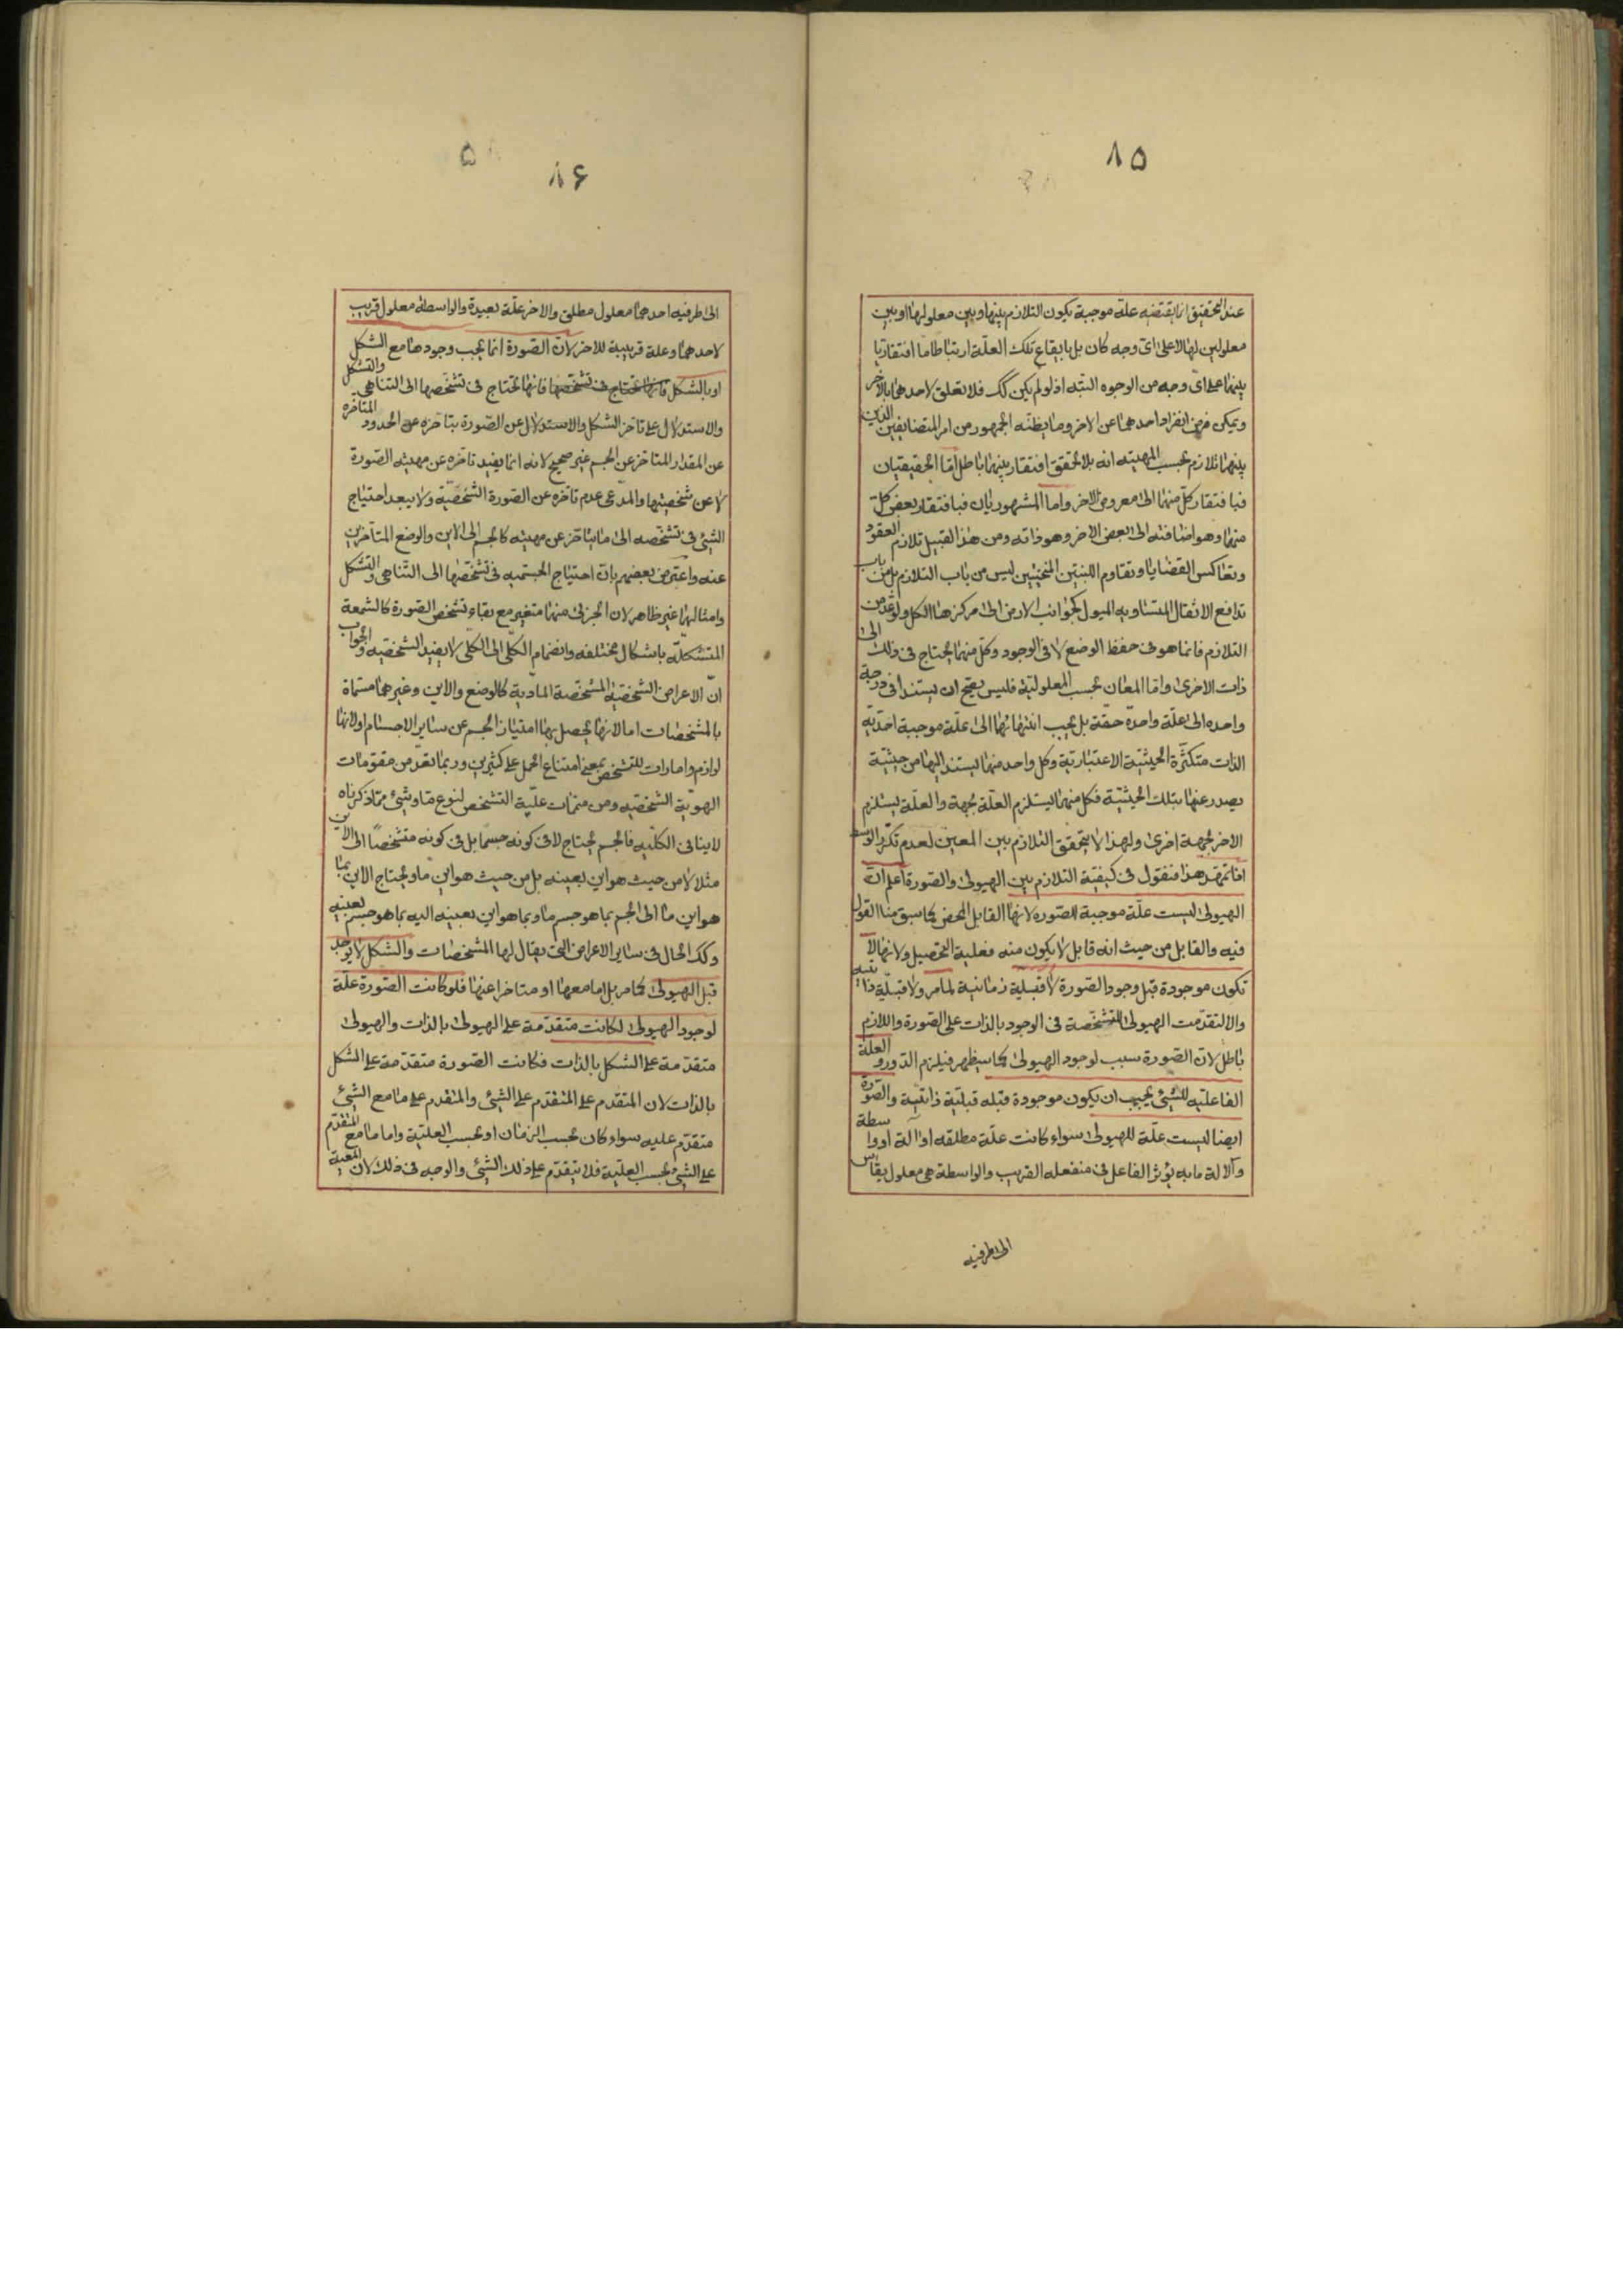 ٨٥
عند التحقيق انما يقتضيه علة موجبة يكون التلازم بينها وبين معلولها او بين
معلولين لها لا على اى وجه كان بل بايقاع تلك العلّة ارتباطا ما افتقاريا
بينهما على اى وجه من الوجوه البتّه اذ لو لم يكن كك فلا تعلق لاحدهما بالاخر
ويمكن فرض انفراد احدهما عن الاخر وما يظنّه الجمهور من امر المتضايفين الذين
بينهما تلازم بحسب المهيته انه بلا تحقق افتقار بينهما باطل امّا الحقيقيان
فبافتقار كلّ منهما الى معروض الاخر واما المشهوريان فبافتقار بعض كلّ
منهما وهو اضافته الى بعض الاخر وهو ذاته ومن هذا القبيل تلازم العقود
وتعاكس القضايا وتقاوم اللبنتين المنحنيتين ليس من باب التلازم بل من باب
تدافع الاثقال المتساويه الميول كجوانب الارض الى مركزها الكل ولو عدّ من
التلازم فانما هو فى حفظ الوضع لا فى الوجود وكلّ منهما يحتاج فى ذلك الى
ذات الاخرى وامّا المعان بحسب المعلولية فليس يصح ان يستندا فى درجة
واحده الى علّة واحدة حقّة بل يجب انتهائهما الى علّة موجبة احديّة
الذات متكثّرة الحيثيّة الاعتباريّة وكل واحد منهما يستند اليها من حيثيّة
يصدر عنها بتلك الحيثيّة فكل منهما يستلزم العلّة بجهة والعلّة يستلزم
الاخر بجهة اخرى ولهذا لا يتحقق التلازم بين المعين لعدم تكرّر الوسط
اذا تمهّد هذا فنقول فى كيفيّة التلازم بين الهيولى والصّورة اعلم انّ
الهيولى ليست علّة موجبة للصّوره لانها القابل المحض كما سبق منا القول
فيه والقابل من حيث انه قابل لا يكون منه فعلية التحصيل ولانها لا
تكون موجودة قبل وجود الصّورة لا قبليّة زمانيّة لما مر ولا قبليّة ذاتيه
والا لتقدّمت الهيولى المتشخّصة فى الوجود بالذات على الصّورة واللازم
باطل لانّ الصّورة سبب لوجود الهيولى كما سيظهر فيلزم الدّور والعلّة
الفاعليّه للشئ يجب ان يكون موجودة قبله قبليّة ذاتيّة والصّورة
ايضا ليست علّة للهيولى سواء كانت علّة مطلقه او آلة او واسطة
والآلة ما به يؤثر الفاعل فى منفعله القريب والواسطة هى معلول يقاس
الى طرفيه
٨۶
الى طرفيه احدهما معلول مطلق والاخر علّة بعيدة والواسطه معلول قريب
لاحدهما وعلة قريبة للاخر لانّ الصّورة انما يجب وجودها مع الشكل
او بالشكل فانها تحتاج فى تشخّصها فانها تحتاج فى تشخّصها الى التناهى والتشكل
والاستدلال على تاخر الشكل والاستدلال عن الصّورة بتاخره عن الحدود المتاخره
عن المقدار المتاخر عن الجسم غير صحيح لانه انما يفيد تاخره عن مهيته الصّورة
لا عن شخصيتها والمدّعى عدم تاخّره عن الصّورة الشخصيّة ولا يبعد احتياج
الشئ فى تشخّصه الى ما يتاخّر عن مهيته كالجسم الى الاين والوضع المتاخرين
عنه واعترض بعضهم بانّ احتياج الجسميه فى تشخّصها الى التّناهى والتشكل
وامثالهما غير ظاهر لان الجزئى منهما متغير مع بقاء تشخص الصّورة كالشمعة
المتشكلّة باشكال مختلفه وانضمام الكلّى الى الكلّى لا يفيد الشخصيّه والجواب
انّ الاعراض الشخصيّة المشخّصة الماديّة كالوضع والاين وغيرهما مسمّاة
بالمشخصات امّا لانها يحصل بها امتياز الجسم عن ساير الاجسام او لانها
لوازم وامارات للتشخص بمعنى امتناع الحمل على كثيرين وربما تعدّ من مقومات
الهويّة الشخصّيه ومن متمّمات علّية التشخص لنوع ما وشئ ممّا ذكرناه
لا ينافى الكلّيه فالجسم يحتاج لا فى كونه جسما بل فى كونه متشخصًا الى الاين
مثلا لا من حيث هو اين بعينه بل من حيث هو اين ما ويحتاج الاين بما
هو اين ما الى الجسم بما هو جسم ما وبما هو اين بعينه اليه بما هو جسم بعينه
وكك الحال فى ساير الاعراض التى يقال لها المشخصات والشكل لا يوجد
قبل الهيولى كما مر بل اما معها او متاخرا عنها فلو كانت الصّورة علّة
لوجود الهيولى لكانت متقدّمة على الهيولى بالذات والهيولى
متقدّمة على الشكل بالذات فكانت الصّورة متقدّمة على الشكل
بالذات لان المتقدم على المتقدّم على الشئ والمتقدم على ما مع الشئ
متقدّم عليه سواء كان بحسب الزمان او بحسب العليّة واما ما مع المتقدّم
على الشئ بحسب العليّة فلا يتقدّم على ذلك الشئ والوجه فى ذلك لان المعية